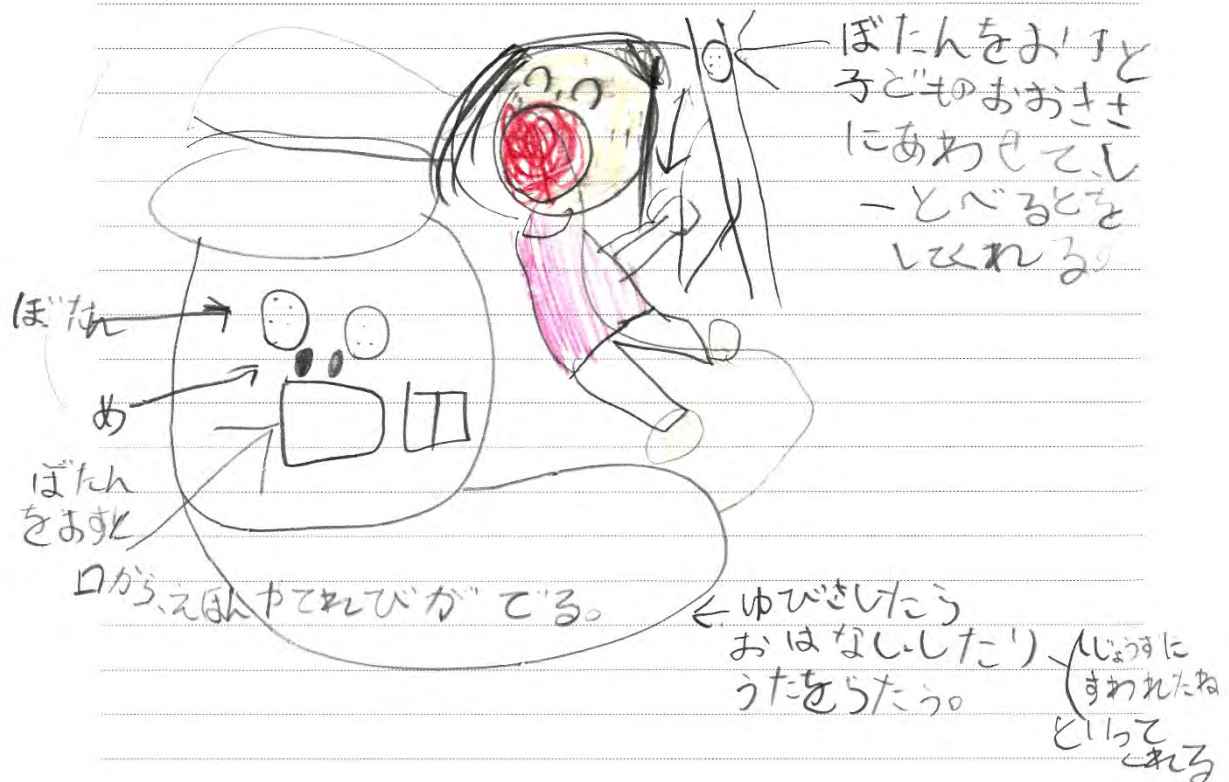 ぼたんをおすと
子どものおおきさ
にあわせて、し
ーとべるとを
してくれる。
ぼたん
め
ぼたん
をおすと
口から、えほんやてれびがでる。
ゆびさしたら
おはなし、したり、
うたをうたう。
じょうずに
すわれたね
といって
くれる